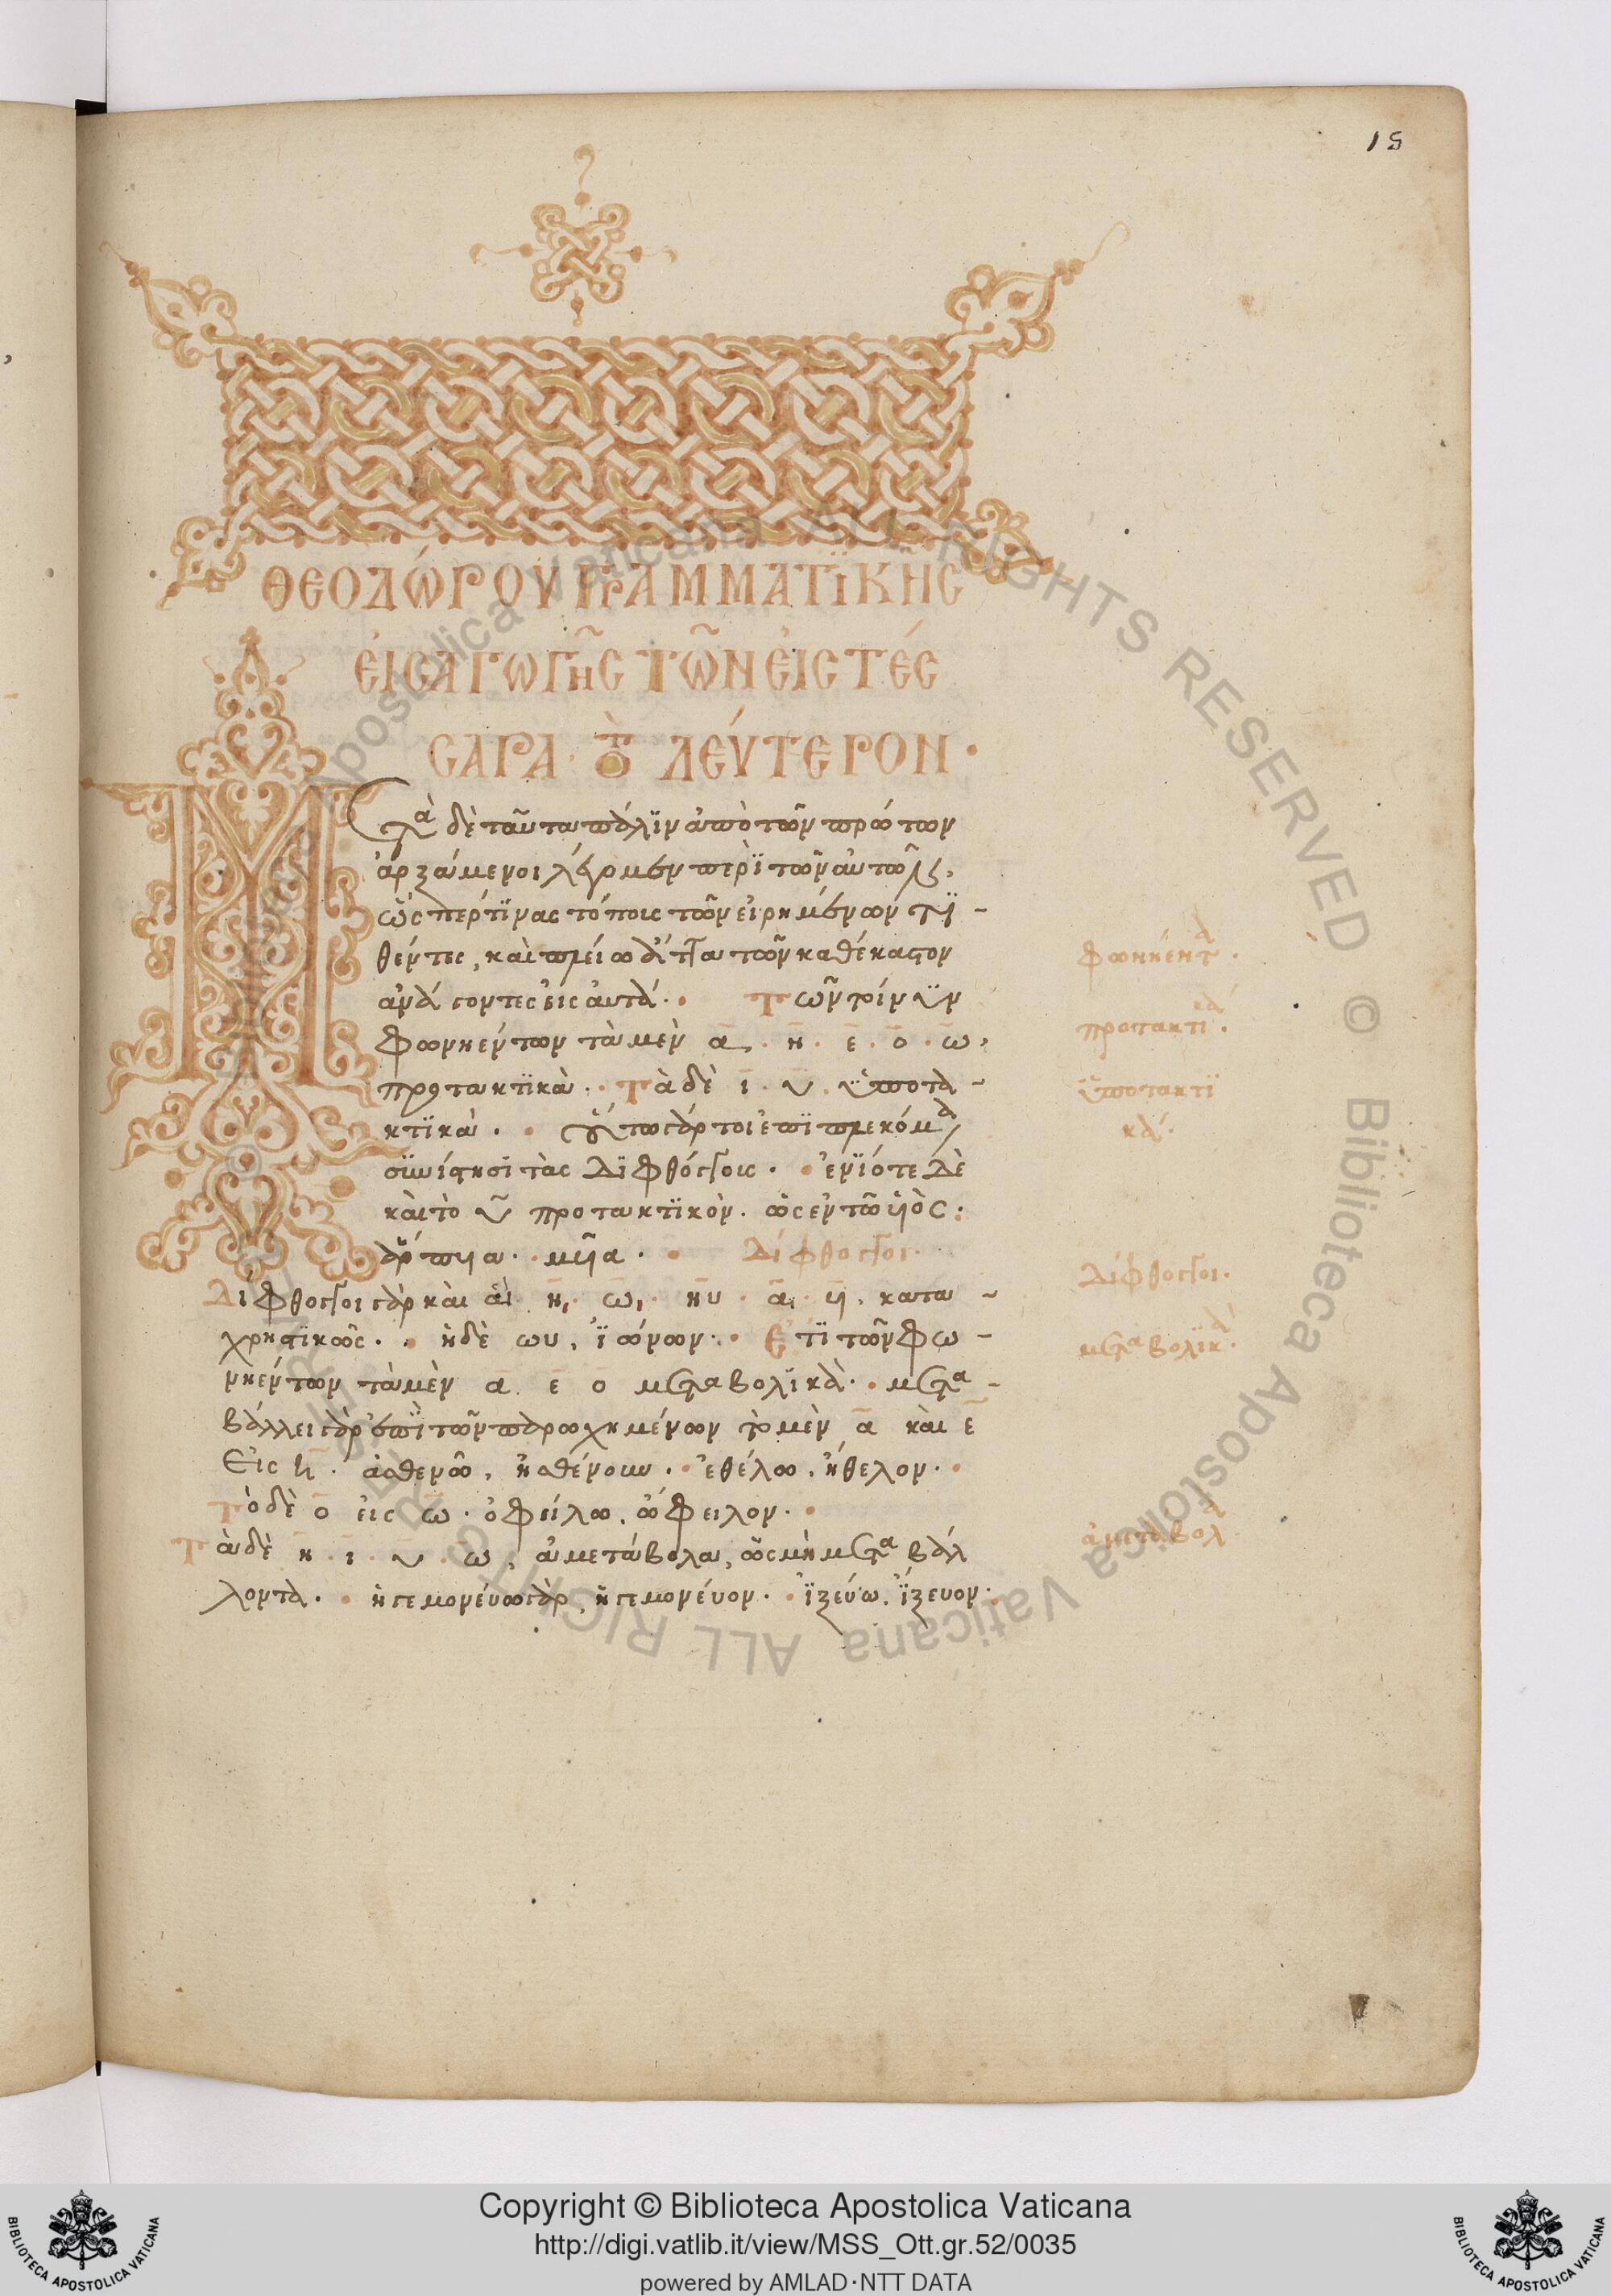 15
ΘΕΟΔΏΡΟΥ ΓΡΑΜΜΑΤΪΚΗ͂Σ
ἘΙΣΑΓΩΓΗ͂Σ ΤΩ͂Ν ἘΙΣ ΤΈΣ
ΣΑΡΑ ΤῸ ΔΕΎΤΕΡΟΝ ·
Μετὰ δὲ ταῦτα πάλϊν ἀπὸ τῶν πρώτων
ἀρξάμενοι λέγομεν περὶ τῶν αὐτῶν,
ὥσπέρ τϊνας τόποις τῶν εἰρημένων τϊ -
θέντες, καὶ πλείω δῆτα τῶν καθέκαστον
ἀνάγοντες εἰς ἀυτά · Τῶν τοίνϋν
φωνηέντων τὰ μὲν α · η · ε · ο · ω,
προτακτϊκὰ · Τὰ δὲ ι · υ · ϋποτα -
κτϊκὰ · ὅυτω γάρτοι ἐπϊπλεκόμενα
συνίστησϊ τὰς Δϊφθόγγους · ἐνϊότε Δὲ
καὶ τὸ υ προτακτϊκόν · ὡς ἐν τῶ υἱὸς :
ἅρπυια · μυῖα · Δίφθογγοι ·
Δίφθογγοι γὰρ καὶ ἁι · ηι · ωι · ηυ · αι · υι · κατα -
χρηστϊκῶς · ἡ δὲ ωυ, ϊώνων · Ἔτϊ τῶν φω -
νηέντων τὰ μὲν α ε ο μεταβολϊκὰ · μετα -
βάλλει γὰρ ἐπὶ τῶν παρωχημένων τὸ μὲν α καὶ ε
Εἰς η · ἀσθενῶ, ἠσθένουν · ἐθέλω, ἤθελον ·
Τὸ δὲ ο εἰς ω · ὀφείλω, ὤφειλον ·
Τὰ δὲ η · ι · υ · ω, ἀμετάβολα, ὡς μὴ μεταβάλ
λοντα · ἡγεμονεύω γὰρ, ἡγεμονέυον · ϊξεύω, ΐξευον :
φωνήεντα ·
προτακτικά ·
ϋποτακτϊ
κά ·
Δίφθογγοι ·
μεταβολϊκά ·
ἀμετάβολα
Copyright © Biblioteca Apostolica Vaticana
http://digi.vatlib.it/view/MSS_Ott.gr.52/0035
powered by AMLAD·NTT DATA
BIBLIOTECA APOSTOLICA VATICANA
BIBLIOTECA APOSTOLICA VATICANA
© Biblioteca Apostolica Vaticana ALL RIGHTS RESERVED